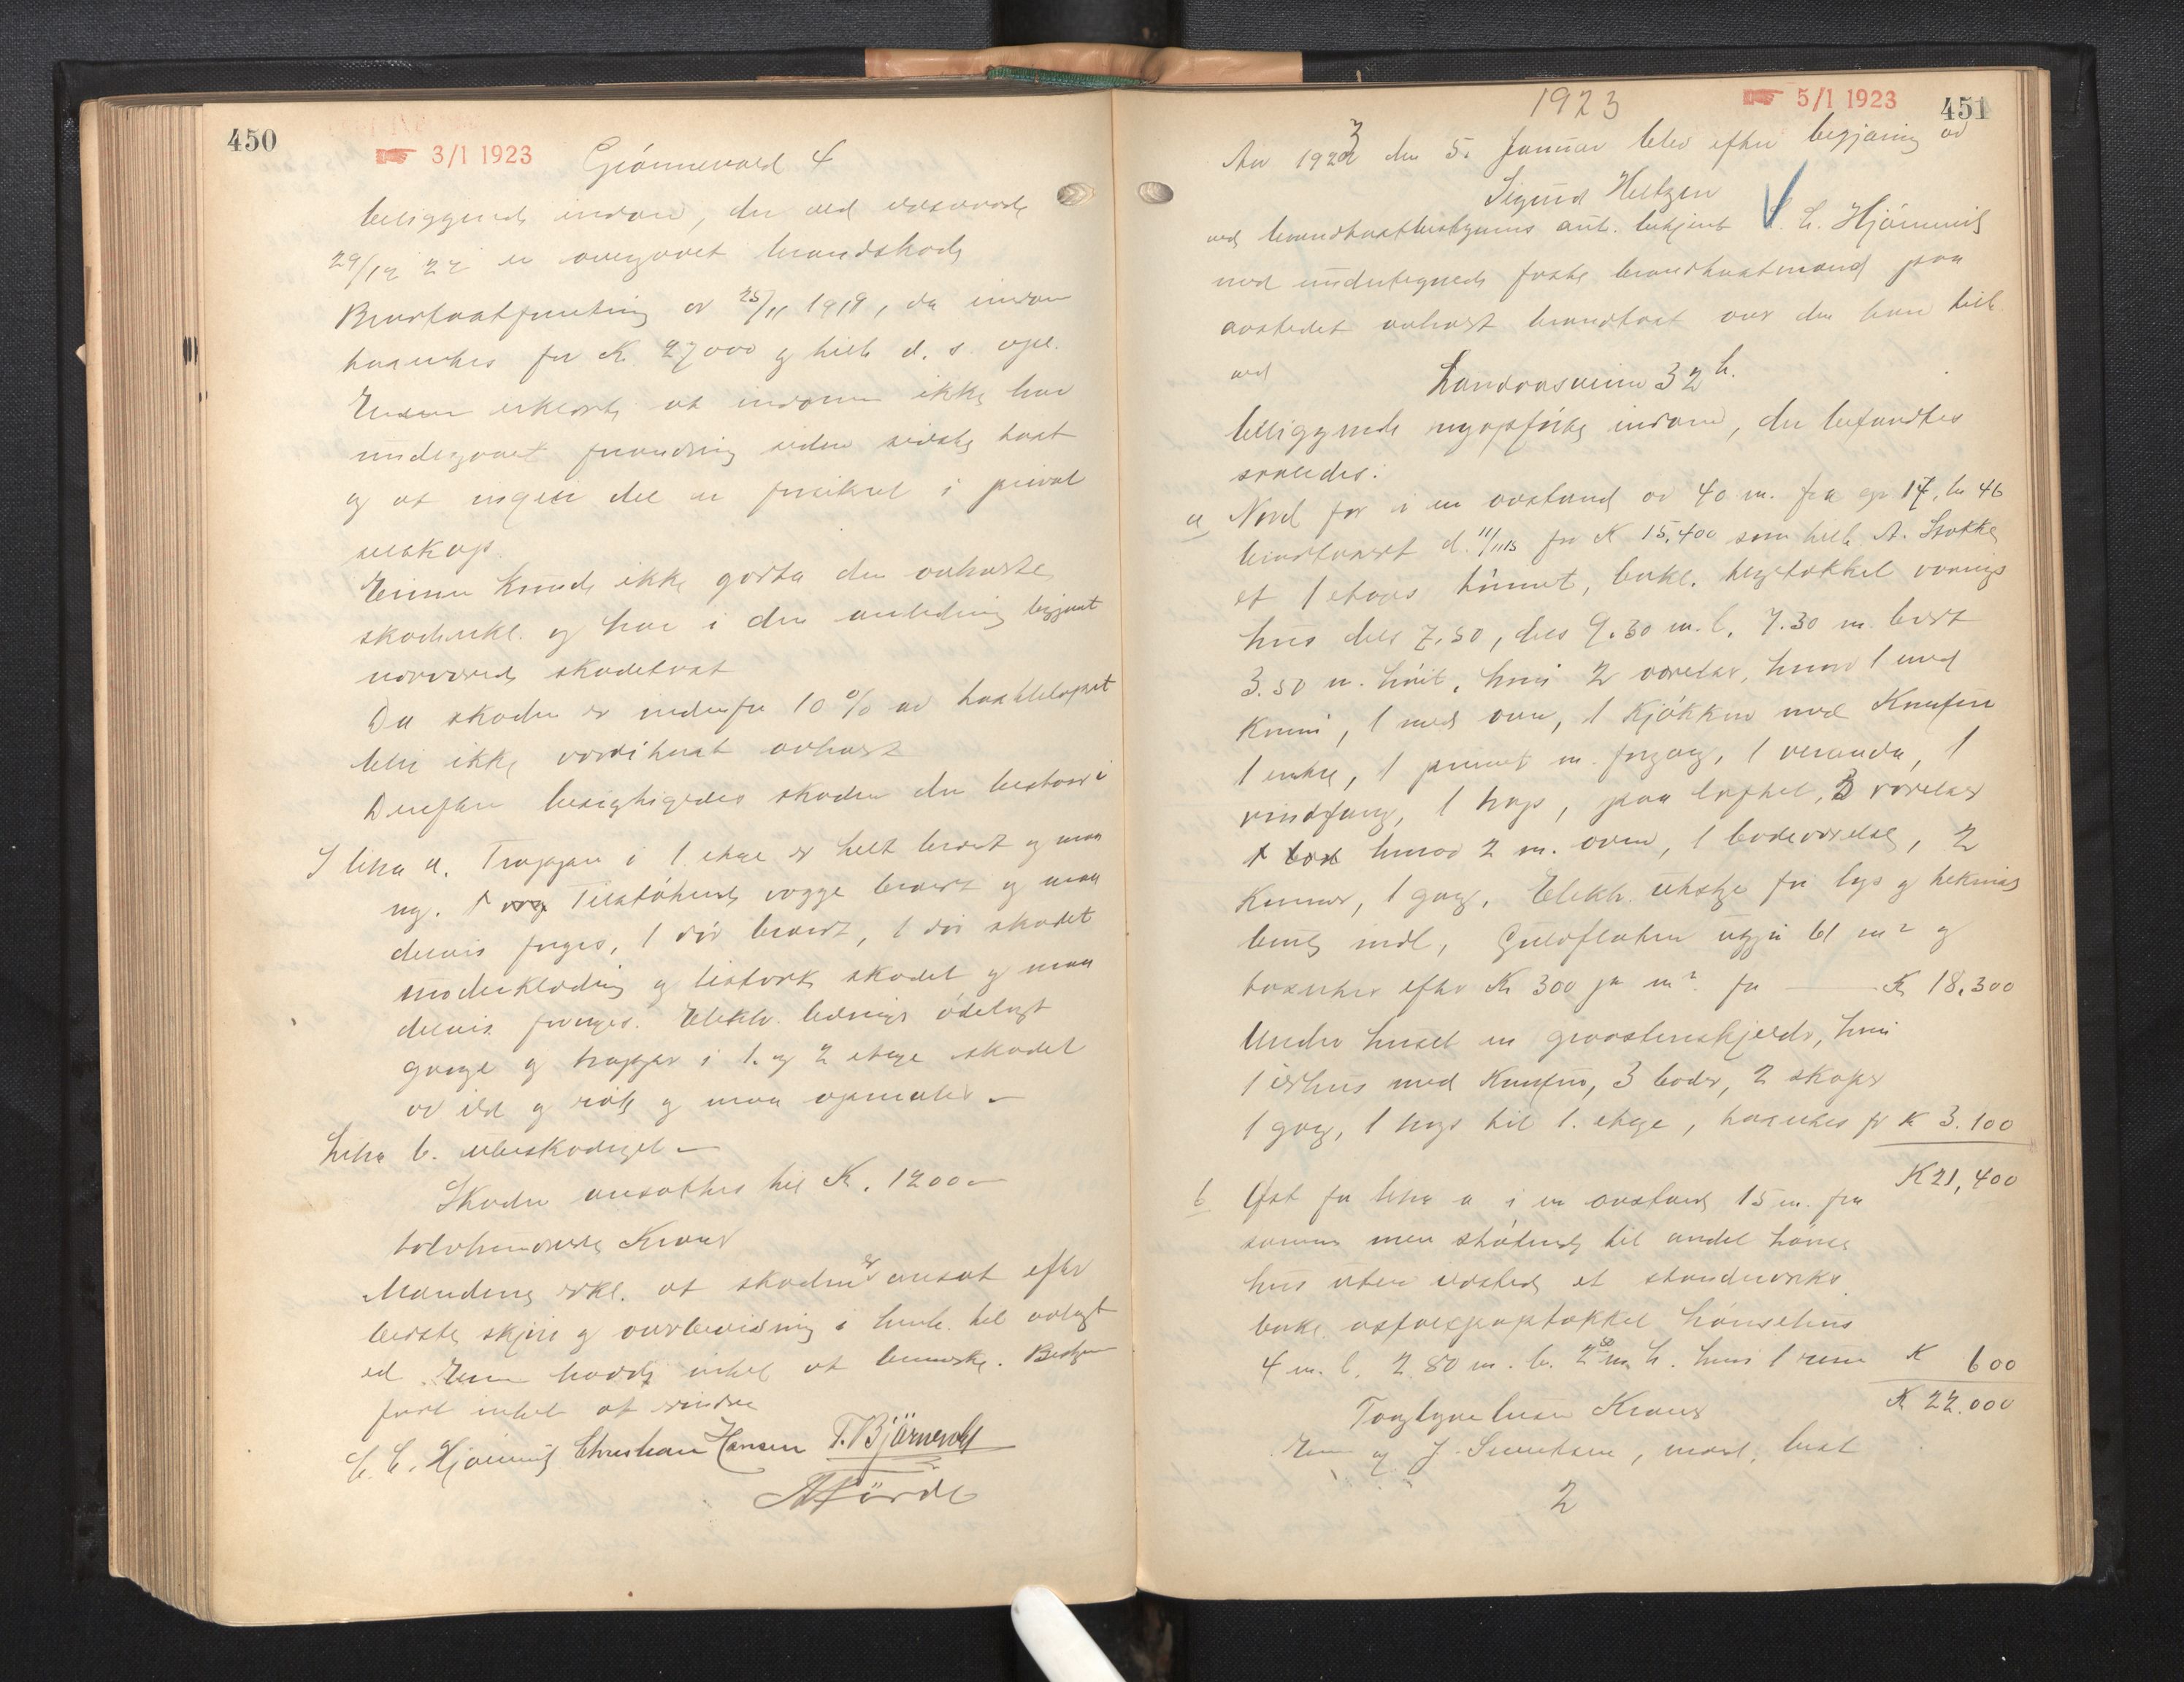 450
3/1 1923
Grönnevold 4
beliggende indom, der ved ildsvaade
29/12 22 er overgaaet brandskade
Brandtaxtforretning av 25/11 1919, da indom
taxertes for K 27000 og hitl. d. s. opl.
Eieren erklærte at indommen ikke har
undergaaet forandring siden sidste taxt
og at ingen del er forsikret i privat
selskap.
Eieren kunde ikke godta den avholdte
skade og har i den anledning begjært
nærværende skadetaxt
Da skaden er indenfor 10 % av taxtbeløpet
blev ikke værditaxt avholdt
Derefter besigtigedes skaden der bestaar i
I litra a. Trappen i 1 etage er helt brændt og maa
ny. Tilstötende vægge brændt og maa
delvis fornyes, 1 dör brændt, 1 dör skadet
underklædning og listverk skadet og maa
delvis fornyes. Elektr. ledninger ödelagt
gange og trapper i 1. og 2 etage skadet
av ild og rök og maa opmales –
Litra b. ubeskadiget –
Skaden ansattes til K. 1200 –
tolvhundrede Kroner
Mændene erkl. at skaden er ansat efter
bedste skjön og overbevisning i henh. til avlagt
ed. Eieren hadde intet at bemerke. Bestyreren
fandt intet at erindre
C. C. Hjömmis Christian Hansen T. Björnevold
A Förde
1923
5/1 1923
451
Aar 1923 den 5. Januar blev efter begjæring av
Sigurd Heltzen
ved brandtaxtbestyrerens aut. C. Hjömmis
med undertegnede faste brandtaxtmænd paa
aastedet avholdt brandtaxt over den ham tilh
ved
Landaasveien 32 b.
beliggende nyopförte indom, der befandtes
saaledes:
a Nord for i en avstand av 40 m. fra gr 14, br 46
brandtaxert d. 11/11 15 for K 15,400 som tilh. A. Stokke
et 1 etages tömret, bokl. teglstækket vaanings
hus dels 7.50, dels 9.30 m. l. 7.30 m bredt
3.50 m. höit, hvori 2 værelser, hvorav 1 med
Kamin, 1 med ovn, 1 kjökken med Komfur
1 entre, 1 privet m. forgang, 1 veranda, 1
vindfang, 1 trap, paa loftet, 3 værelser
hvorav 2 m. ovn, 1 badeværelse, 2
Kammer, 1 gang. Elektr. utstyr for lys og tekning
benk indl, Gulvflaten utgjör 61 m2 og
taxertes efter K 300 pr m2. for — K 18,300
Under huset en graastenskjelder, hvori
1 ildhus med Komfur, 3 boder, 2 skaper
1 gang, 1 trap til 1. etage, taxertes for K 3.100
K 21,400
b Öst for litra a i en avstand 15 m. fra
samme men stötende til andet hönse
hus uten ildsted et standverks
bokl. asfaltpaptækket hönsehus
4 m. l. 2.80 m. b. 2 m h. hvori 1 rum K 600
K 22.000
Toogtyvetusen Kroner
Eieren og J. Svendsen, mæl. taxt
2